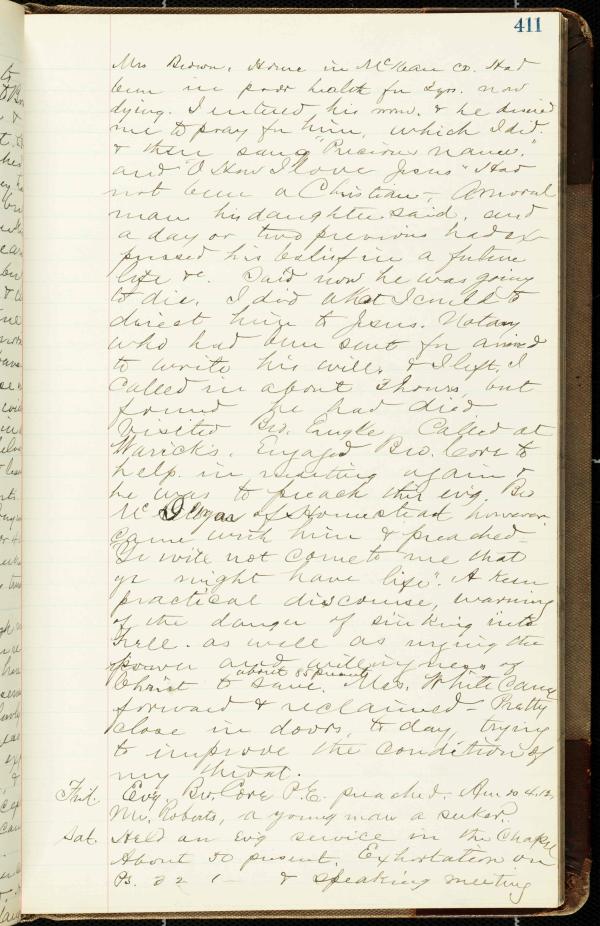 411
Mrs Brown. Home in McKean co. Had
been in poor health for 2 yrs. now
dying. I entered his room, & he desired
me to pray for him, which I did.
& then sang "Precious name,"
and "O How I love Jesus" Had
not been a Christian, A moral
man his daughter said, and
a day or two previous had ex-
pressed his belief in a future
life &c. Said now he was going
to die. I did what I could to
direct him to Jesus. Notary
who had been sent for arrived
to write his will, & I left. I
called in about 2 hours, but
found he had died
Visited Bro. Engle. Called at
Warick's. Engaged Bro. Core to
help in meeting again &
he was to preach this evg. Bro
Mc of Homestead however
came with him & preached—
"Ye will not come to me that
ye might have life". A keen
practical discourse, warning
of the danger of sinking into
hell. as well as urging the
power and willingness of
about 85 present
Christ to save. Mrs. White came
forward & reclaimed— Pretty
close in doors, to day, trying
to improve the condition of
my throat.
Evg. Bro. Core P.E. preached— 4.12.
Mr. Roberts, a young man a seeker.
Sat. Held an evg service in the Chapel
About 50 present. Exhortation on
Ps. 32 1— & speaking meeting